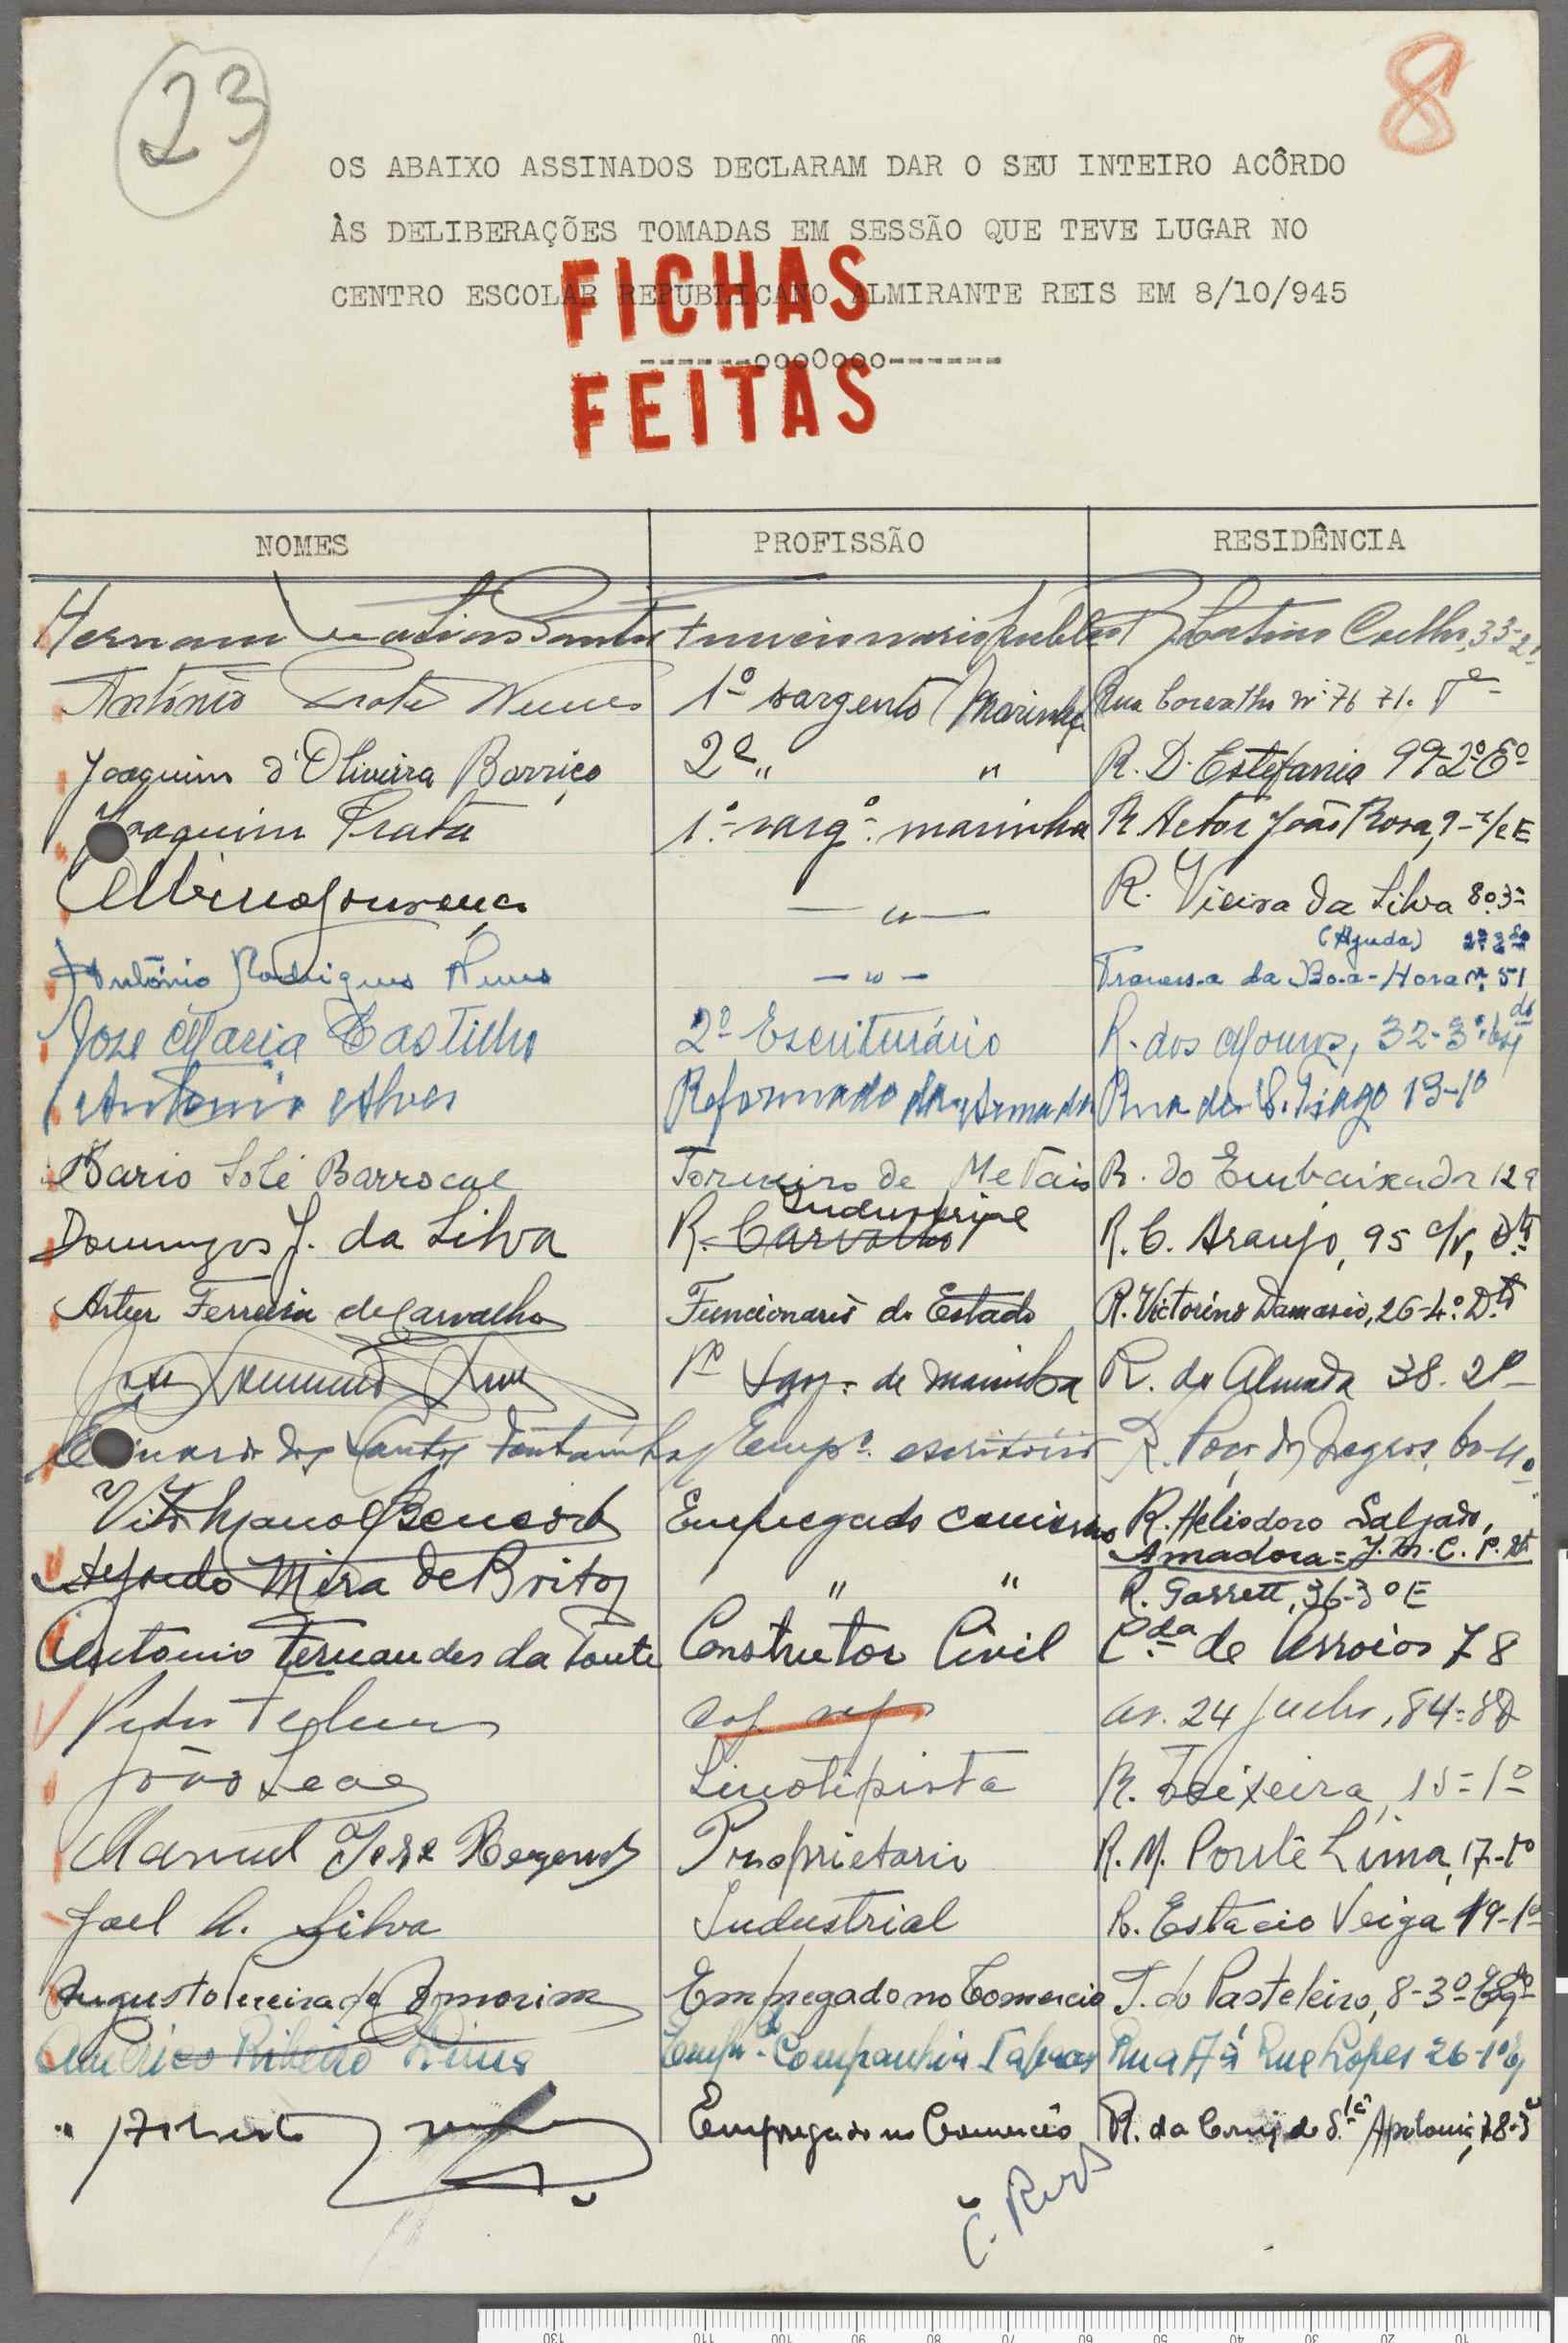 23
8
OS ABAIXO ASSINADOS DECLARAM DAR O SEU INTEIRO ACÔRDO
ÀS DELIBERAÇÕES TOMADAS EM SESSÃO QUE TEVE LUGAR NO
CENTRO ESCOLAR REPUBLICANO ALMIRANTE REIS EM 8/10/945
-------oooOooo-------
FICHAS
FEITAS
NOMES PROFISSÃO RESIDÊNCIA
Hernani Santos Funcionario publico R. Martins Coelho, 33-2º
António Prata Nunes 1º sargento Marinha Rua Carvalho 71
Joaquim d'Oliveira Barriço 2º " " R. D. Estefania 99-2º Eº
Joaquim Prata 1º sargº marinha R. Actor João Rosa, 9-r/c E
Albino Lourenço — " — R. Vieira da Silva 8
(Ajuda)
António Rodrigues Nunes — " — Travessa da Boa-Hora nº 51
José Maria Castilho 2º Escriturário R. dos Mouros, 32-3º
Antonio Alves Reformado da Armada Rua de S. Tiago 13-1º
Dario Solé Barrocal Torneiro de Metais R. do Embaixador 129
Industrial
Domingos J. da Silva R. Carvalho R. C. Araujo, 95 c/v, Dtº
Artur Ferreira de Carvalho Funcionario do Estado R. Victorino Damasio, 26-4º Dtº
José 1º Sarg. de marinha R. do Almada 38. 2º
dos Santos Fontainhas Empº escritório R. Poço dos Negros, 60-4º
Vitor Empregado comércio R. Heliodoro Salgado,
Amadora = J. M. C. P.
Alfredo Mira de Brito " " R. Garrett, 36-3º E
Antonio Fernandes da Fonte Construtor Civil Cda de Arroios 78
Pedro av. 24 Julho, 84-3º D
João Leal Linotipista R. Teixeira, 15-1º
Manuel José Proprietario R. M. Ponte Lima, 17-1º
Joel A. Silva Industrial R. Estacio Veiga 19-1º
Augusto Pereira de Amorim Empregado no Comercio T. do Pasteleiro, 8-3º Esqº
Americo Ribeiro Companhia Tabacos Rua A à Rua Lopes 26-1º
Empregado no Comercio R. da Cruz de S.ta Apolonia, 78-3º